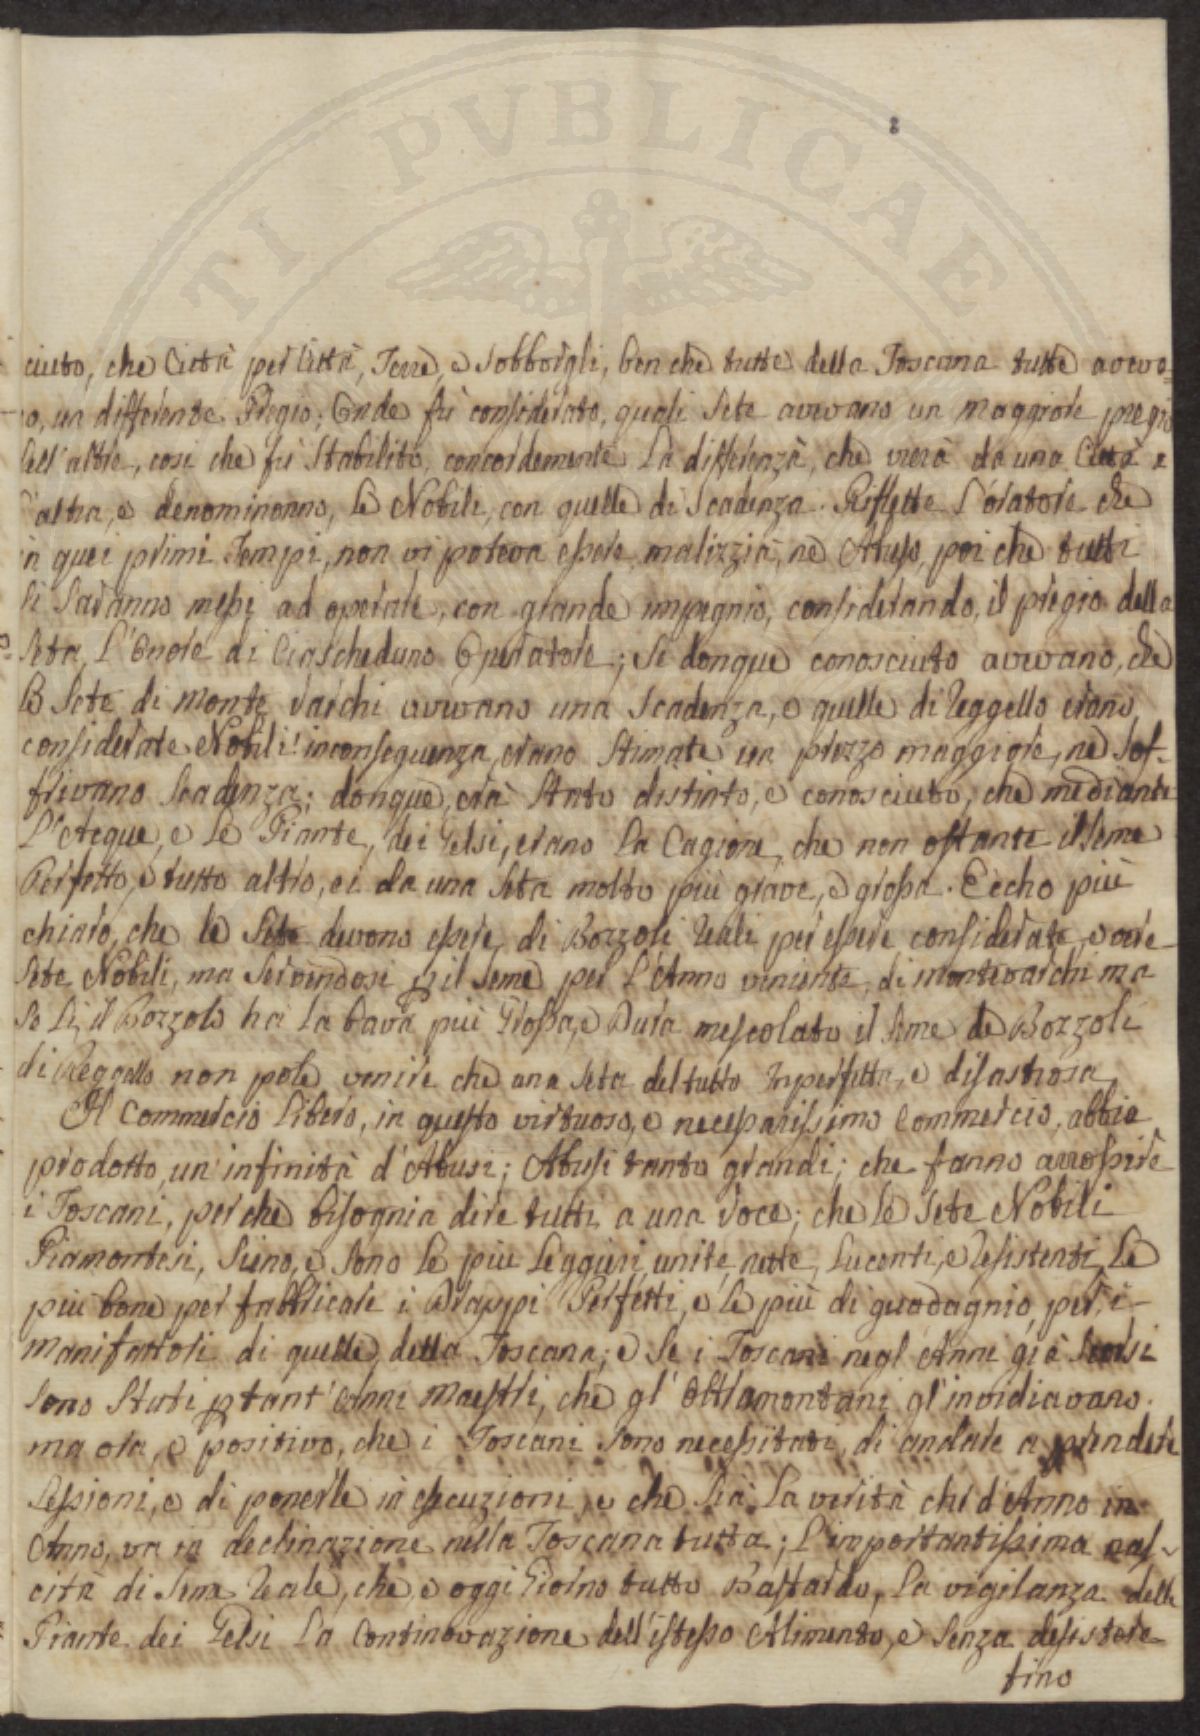 TI PVBLICAE
8
ciuto, che Città per Città, Terre, e Sobborghi, ben che tutte della Toscana tutte aveva=
o, un differente Pregio; Onde fù considerato, quali Sete avevano un maggiore pregio
dell'altre, cosi che fù Stabilito, concordemente la differenza, che vierà da una Città e
l'altra, e denominorno, le Nobili, con quelle di Scadenza. Riflette l'oratore che
in quei primi Tempi, non vi poteva essere malizzia, ne Abuso, poi che tutti
si Saranno messi ad operare, con grande impegnio, considerando, il pregio della
Seta, l'Onore di Ciascheduno Operatore; Se donque conosciuto avevano, che
le Sete di Monte Varchi avevano una Scadenza, e quelle di Reggello erano
considerate Nobili! inconseguenza, erano Stimate un prezzo maggiore, ne Sof=
frivano Scadenza; donque, erà Stato distinto, e conosciuto, che mediante
l'Acque, e le Piante, dei Gelsi, erano la Cagione, che non ostante il Seme
Perfetto, e tutto altro, ei da una Seta molto più grave, e grossa. Ecicho più
chiaro, che le Sete devono essere, di Bozzoli Reali per essere considerate, vere
Sete Nobili, ma Servendosi p il Seme per l'Anno veniente, di montevarchi ma
Se Li, il Bozzolo ha la bava più Grossa, e Dura mescolato il Seme de Bozzoli
di Reggello non pole venire che una Seta deltutto Inperfetta, e disastrosa,
Il Commercio Libero, in questo virtuoso, e necessarissimo Commercio, abbia
prodotto, un'infinità d'Abusi; Abusi tanto grandi; che fanno arrossire
i Toscani, perche bisognia dire tutti a una Voce; che le Sete Nobili
Piamontesi, Sieno, e Sono le piu Leggieri, unite, nette, Lucenti, e Resistenti, Le
piu bone per fabbricare i Drappi Perfetti, e le più di guadagnio, per, i
Manifattori di quelle, della Toscana; e Se i Toscani negl'Anni già Scorsi
Sono Stati p tant'Anni Maestri, che gl'Oltramontani gl'invidiavano.
ma ora, e positivo, che i Toscani Sono necessitati, di andare a prendere
Lessioni, e di ponerle in esecuzioni, e che Sia, la verità che d'Anno in
Anno, va in declinazione nella Toscana tutta; l'importantissima nas=
cità di Seme Reale, che, e oggi Giorno tutto Bastardo, la vigilanza delle
Piante dei Gelsi la Continovazione dell'istesso Alimento, e Senza desistere
fino